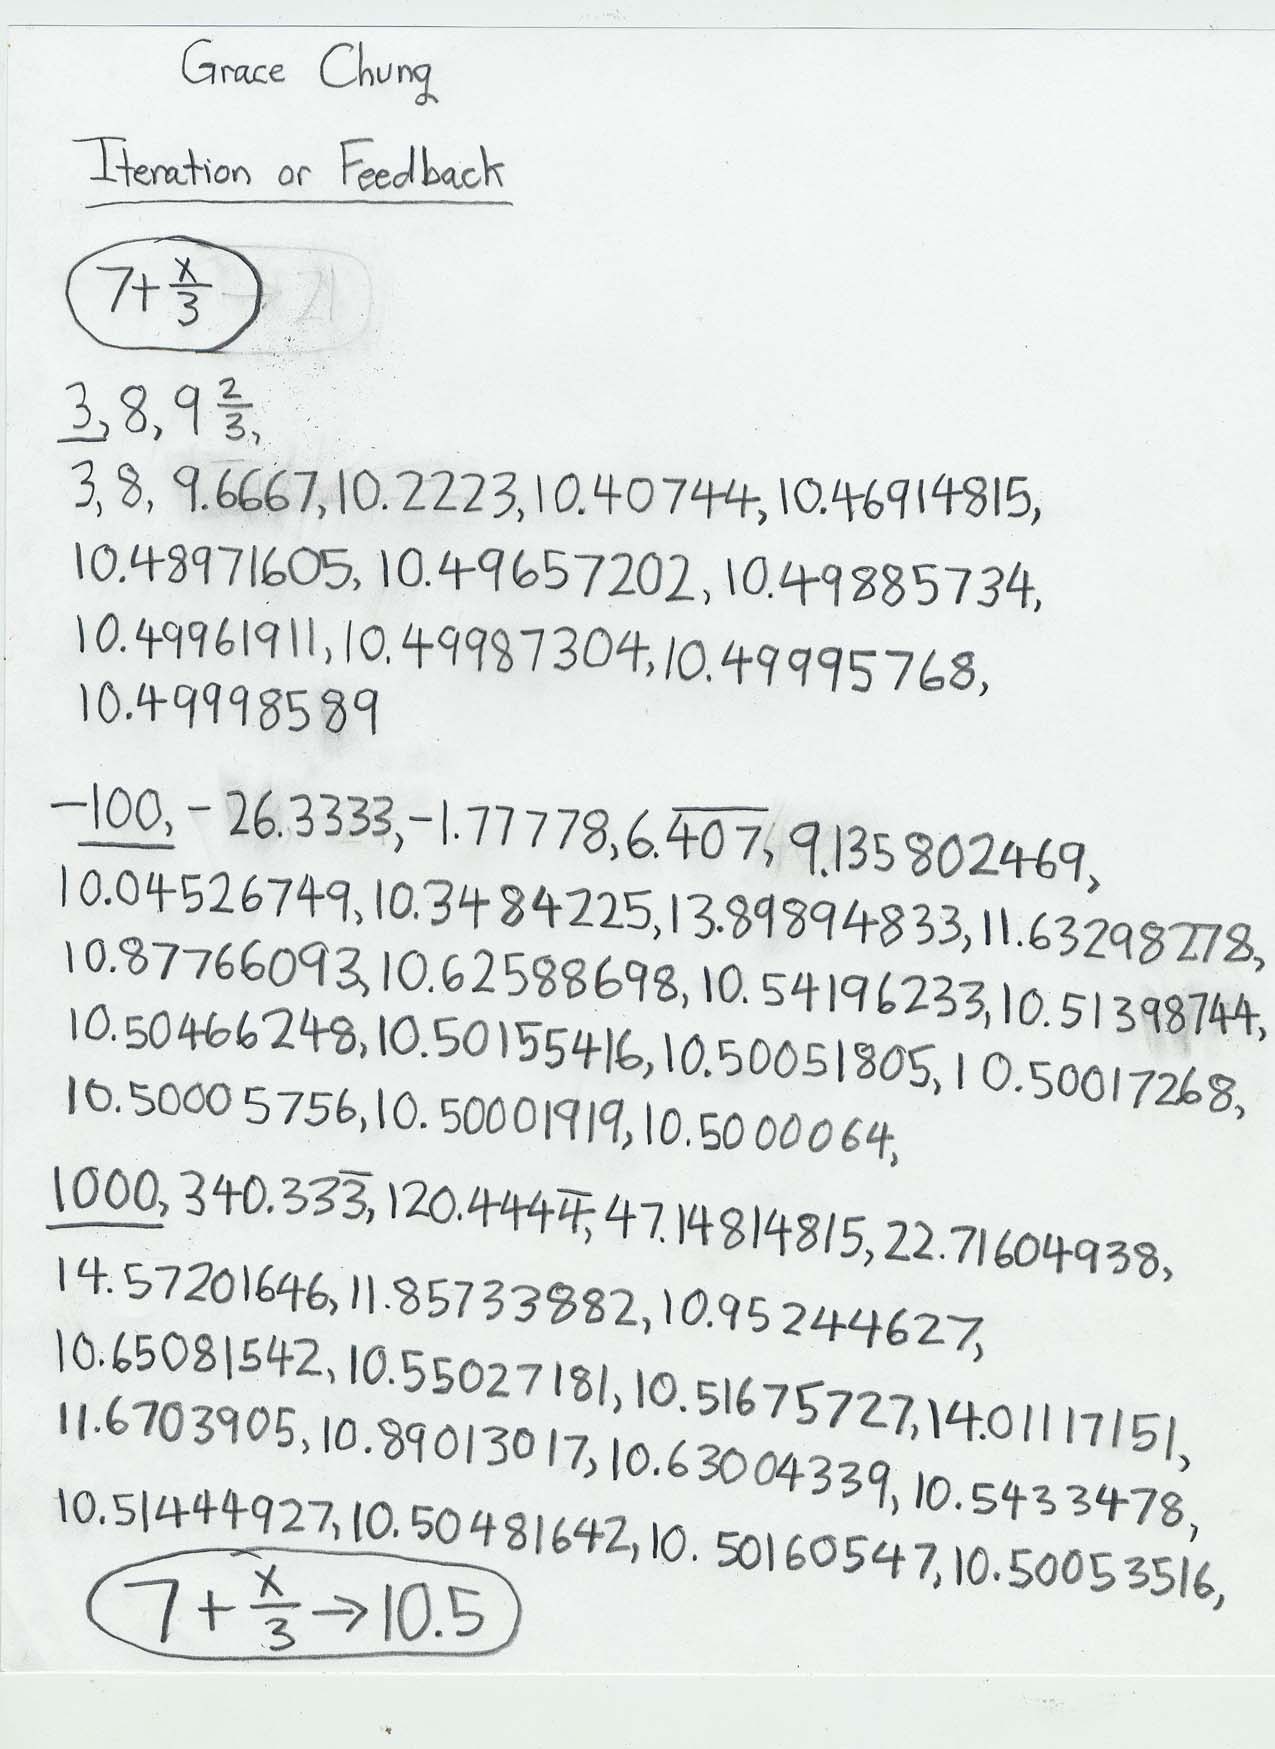 Grace Chung
Iteration or Feedback
7+x/3
3, 8, 9 2/3,
3, 8, 9.6667, 10.2223, 10.40744, 10.46914815,
10.48971605, 10.49657202, 10.49885734,
10.49961911, 10.49987304, 10.49995768,
10.49998589
-100, -26.3333, -1.77778, 6.4̅0̅7̅, 9.135802469,
10.04526749, 10.3484225, 13.89894833, 11.63298278,
10.87766093, 10.62588698, 10.54196233, 10.51398744,
10.50466248, 10.50155416, 10.50051805, 10.50017268,
10.50005756, 10.50001919, 10.5000064,
1000, 340.333̅, 120.4444̅, 47.14814815, 22.71604938,
14.57201646, 11.85733882, 10.95244627,
10.65081542, 10.55027181, 10.51675727, 14.01117151,
11.6703905, 10.89013017, 10.63004339, 10.5433478,
10.51444927, 10.50481642, 10.50160547, 10.50053516,
7+x/3→10.5